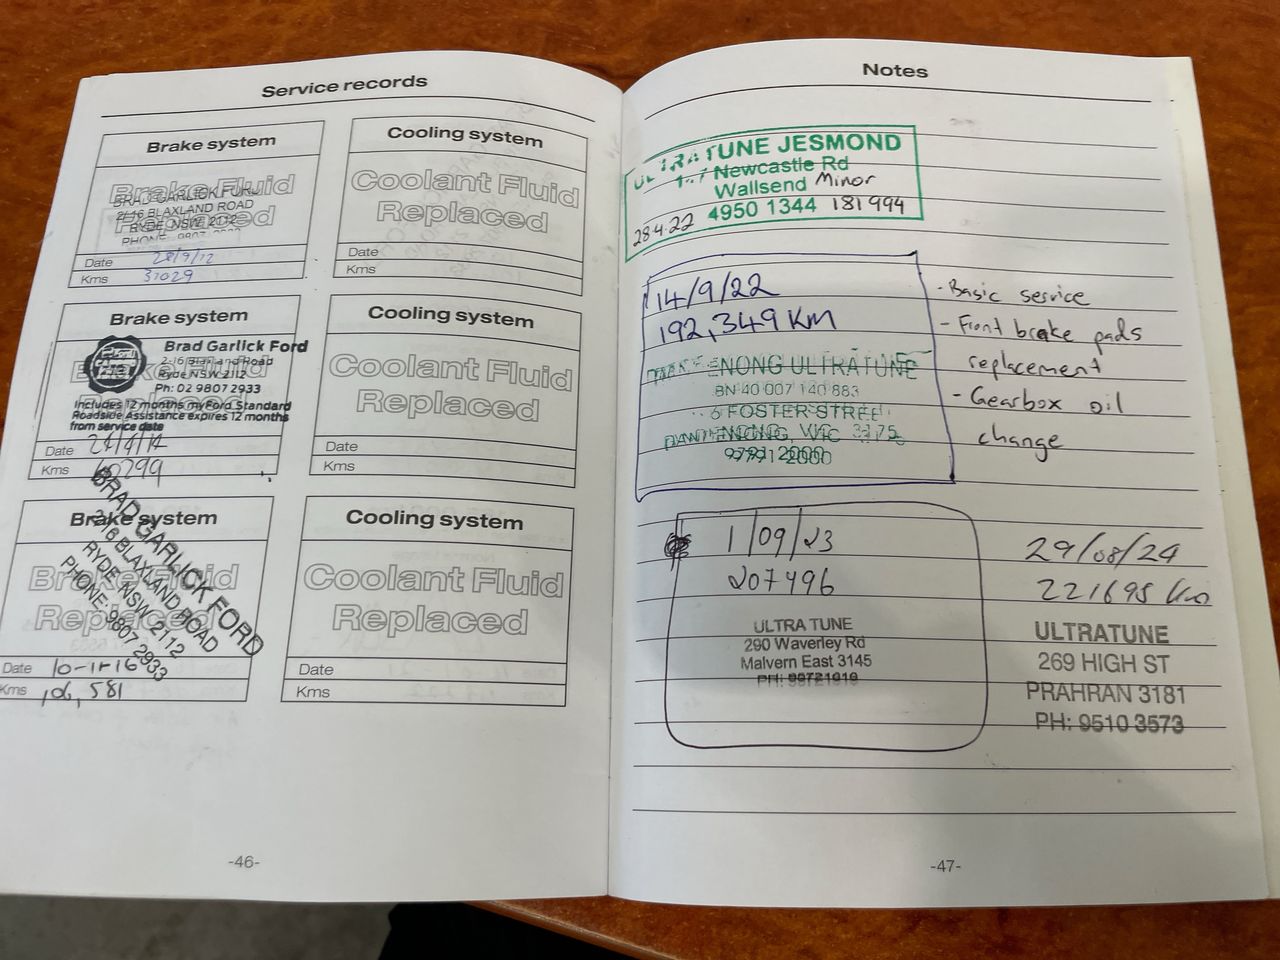 Service records
Brake system
Brake Fluid
Replaced
BRAD GARLICK FORD
2/16 BLAXLAND ROAD
RYDE NSW 2112
PHONE: 9807 2933
Date 28/9/12
Kms 31029
Cooling system
Coolant Fluid
Replaced
Date
Kms
Brake system
Brake Fluid
Brad Garlick Ford
2-16 Blaxland Road
Ryde NSW 2112
Ph: 02 9807 2933
Includes 12 months myFord Standard
Roadside Assistance expires 12 months
from service date
Date
Kms
Cooling system
Coolant Fluid
Replaced
Date
Kms
Brake system
Brake Fluid
Replaced
BRAD GARLICK FORD
2-16 BLAXLAND ROAD
RYDE NSW 2112
PHONE: 9807 2933
Date 10-11-16
Kms 106,581
Cooling system
Coolant Fluid
Replaced
Date
Kms
-46-
Notes
ULTRATUNE JESMOND
Newcastle Rd
Wallsend Minor
28.4.22 4950 1344 181994
14/9/22
192,349 KM
DANDENONG ULTRATUNE
40 007 140 883
6 FOSTER STREET
DANDENONG, VIC 3175
9791 2000
- Basic service
- Front brake pads
replacement
- Gearbox oil
change
1/09/23
207496
ULTRA TUNE
290 Waverley Rd
Malvern East 3145
PH: 99721919
29/08/24
221695 km
ULTRATUNE
269 HIGH ST
PRAHRAN 3181
PH: 9510 3573
-47-